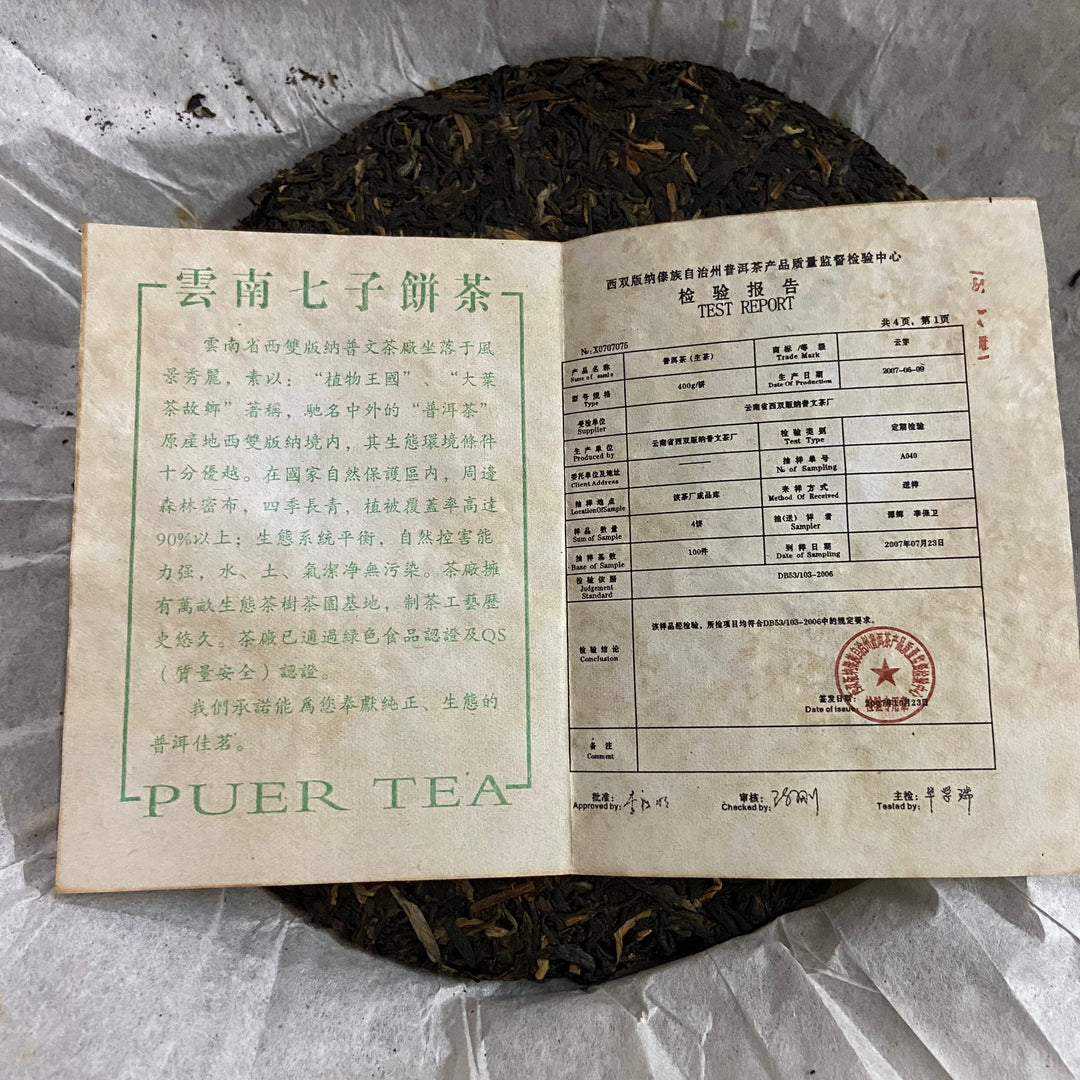 雲南七子餅茶
雲南省西雙版納普文茶廠坐落于風
景秀麗，素以：“植物王國”、“大葉
茶故鄉”著稱，馳名中外的“普洱茶”
原産地西雙版納境内，其生態環境條件
十分優越。在國家自然保護區内，周邊
森林密布，四季長青，植被覆蓋率高達
90%以上；生態系統平衡，自然控害能
力强，水、土、氣潔净無污染。茶廠擁
有萬畝生態茶樹茶園基地，制茶工藝歷
史悠久。茶廠已通過緑色食品認證及QS
（質量安全）認證。
我們承諾能爲您奉獻純正、生態的
普洱佳茗。
PUER TEA
西双版纳傣族自治州普洱茶产品质量监督检验中心
检验报告
TEST REPORT
共4页，第1页
№:X0707075
产品名称 普洱茶（生茶） 商标/等级 云芽
Name of samle Trade Mark
型号规格 400g/饼 生产日期 2007-06-09
Type Date Of Production
受检单位 云南省西双版纳普文茶厂
Supplier
生产单位 云南省西双版纳普文茶厂 检验类别 定期检验
Produced by Test Type
委托单位及地址 —— 抽样单号 A040
Client Address № of Sampling
抽样地点 该茶厂成品库 来样方式 送样
LocationOfSample Method Of Received
样品数量 4饼 抽(送)样者 李保卫
Sum of Sample Sampler
抽样基数 100件 到样日期 2007年07月23日
Base of Sample Date of Sampling
检验依据 DB53/103-2006
Judgement
Standard
该样品经检验，所检项目均符合DB53/103-2006中的规定要求。
检验结论
Conclusion
签发日期：
Date of issue:
检验专用章
备注
Comment
批准： 审核： 主检：
Approved by: Checked by: Tested by: